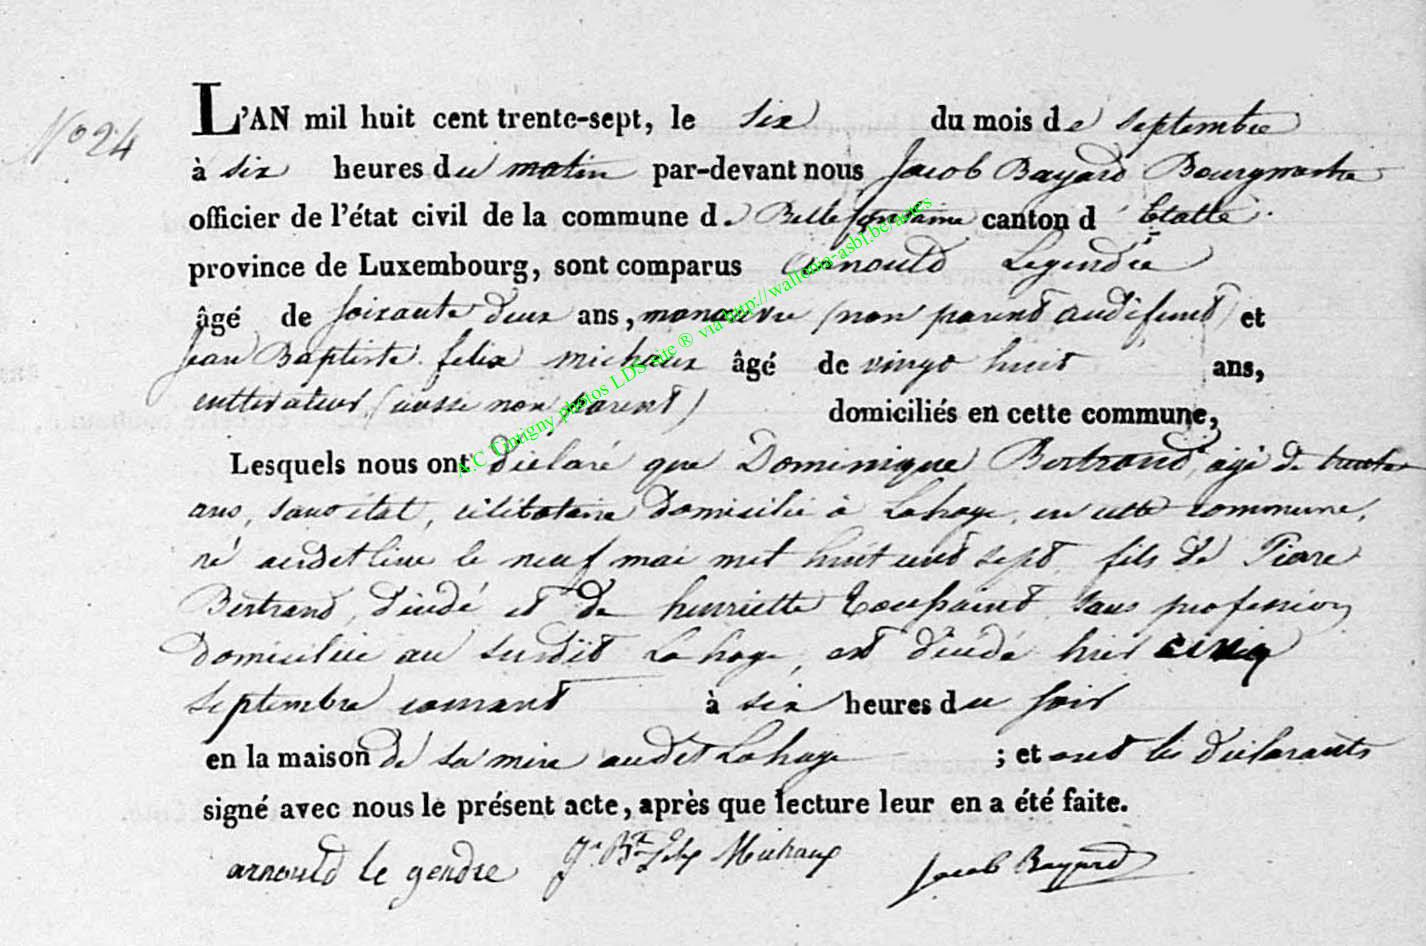 No 24
L'AN mil huit cent trente-sept, le six du mois de septembre
à six heures du matin par-devant nous Jacob Bayard Bourgmestre
officier de l'état civil de la commune de Bellefontaine canton d' Etalle
province de Luxembourg, sont comparus Arnould Legendre
âgé de soixante deux ans, manœuvre (non parent audéfunt) et
Jean Baptiste felix michaux âgé de vingt huit ans,
cultivateur (aussi non parent) domiciliés en cette commune,
Lesquels nous ont déclaré que Dominique Bertrand, agé de trente
ans, sans état, célibataire domicilié à Lahage, en cette commune,
né audit lieu le neuf mai mil huit cent sept, fils de Piere
Bertrand, décédé et de henriette Toussaint, sans profession
domiciliée au susdit Lahage, est décédé hier cinq
septembre courant à six heures du soir
en la maison de sa mère audit Lahage ; et ont les déclarants
signé avec nous le présent acte, après que lecture leur en a été faite.
arnould le gendre Jn Bte Felix Michaux Jacob Bayard
A.C Tintigny photos LDS site ® via http://wallonia-asbl.be/actes